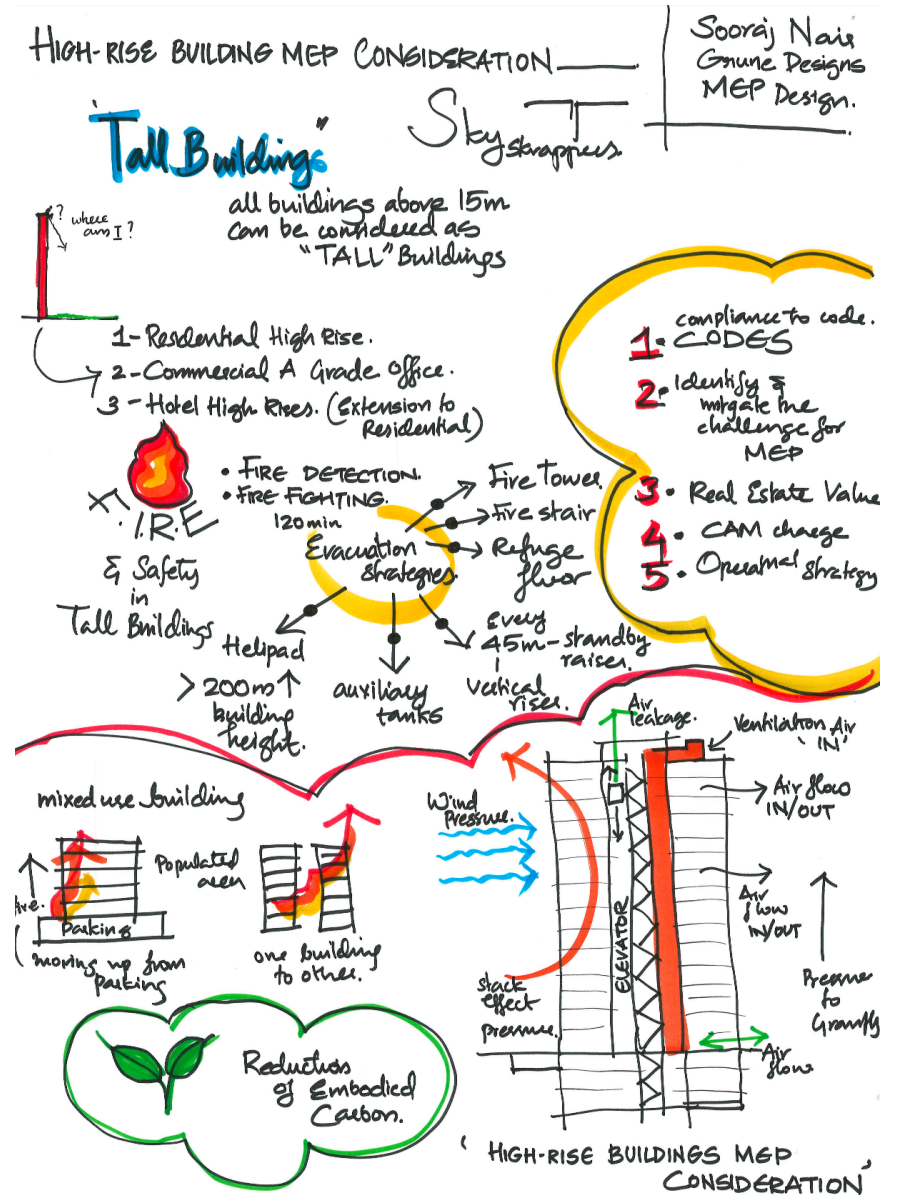 HIGH-RISE BUILDING MEP CONSIDERATION
Sooraj Nair
Grune Designs
MEP Design.
Sky
skrappers.
"Tall Buildings"
all buildings above 15m
can be considered as
"TALL" Buildings
? where
am I?
1- Residential High Rise.
2- Commercial A Grade Office.
3- Hotel High Rises. (Extension to
Residential)
1. compliance to code.
CODES
2. Identify &
mitigate the
challenge for
MEP
3. Real Estate Value
4. CAM charge
5. Operational Strategy
F.I.R.E
& Safety
in
Tall Buildings
• FIRE DETECTION.
• FIRE FIGHTING.
120min
Evacuation
strategies.
Fire Tower
Fire stair
Refuge
floor
Every
45m - standby
raiser.
vertical
rises.
auxiliary
tanks
Helipad
> 200m ↑
building
height.
mixed use building
fire.
Parking
moving up from
parking
Populated
area
one building
to other.
Wind
Pressure.
stack
effect
pressure.
Air
leakage.
Ventilation Air
"IN"
ELEVATOR
Air flow
IN/OUT
Air
flow
IN/OUT
Air
flow
Pressure
to
Reduction
of Embodied
Carbon.
"HIGH-RISE BUILDINGS MEP
CONSIDERATION"